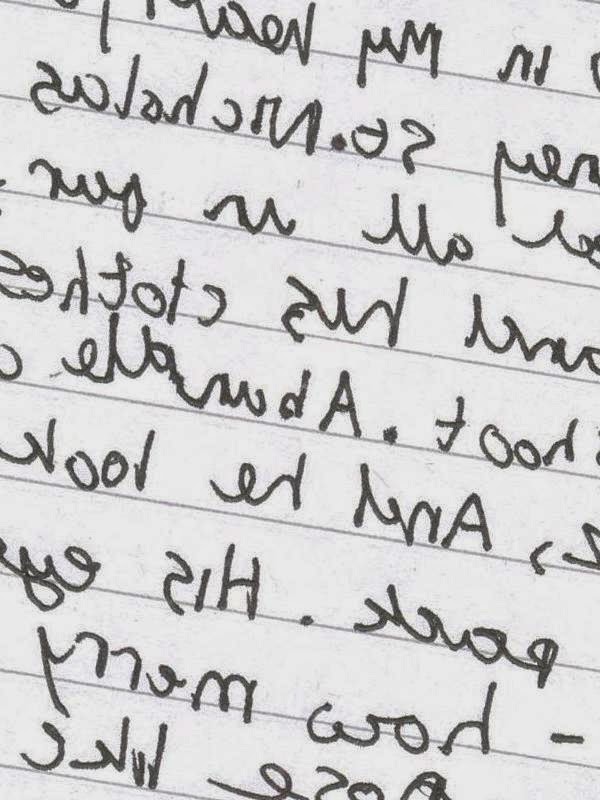 in my
ney St.Nicholas
ed all in fur
and his clothes
hoot . Abundle
, And he look
pack . His eye
- how merry
nose like